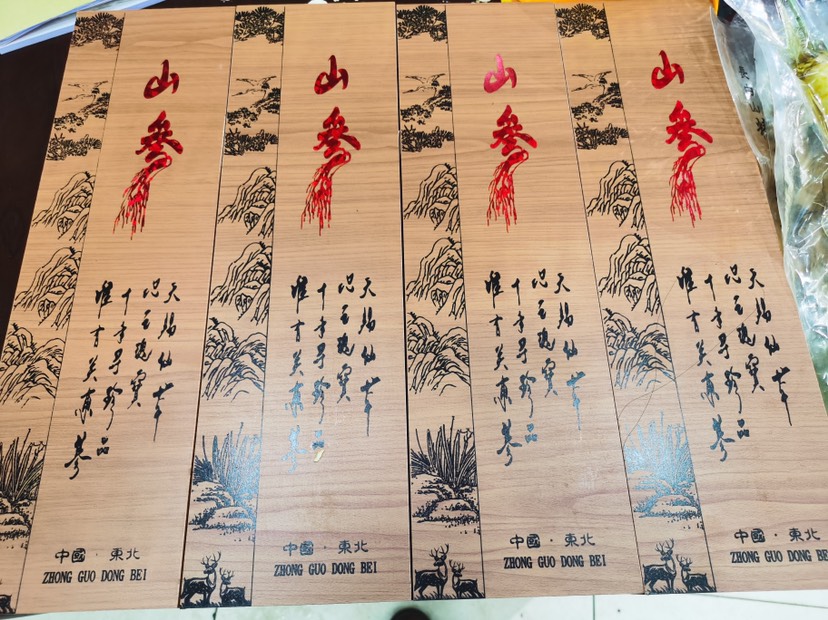 山
参
天赐仙草
至瑰宝
千年寻珍品
惟有关东蔘
中國·東北
ZHONG GUO DONG BEI
山
参
天赐仙草
至瑰宝
千年寻珍品
惟有关东蔘
中國·東北
ZHONG GUO DONG BEI
山
参
天赐仙草
至瑰宝
千年寻珍品
惟有关东蔘
中國·東北
ZHONG GUO DONG BEI
山
参
天赐仙草
至瑰宝
千年寻珍品
惟有关东蔘
中國·東北
ZHONG GUO DONG BEI